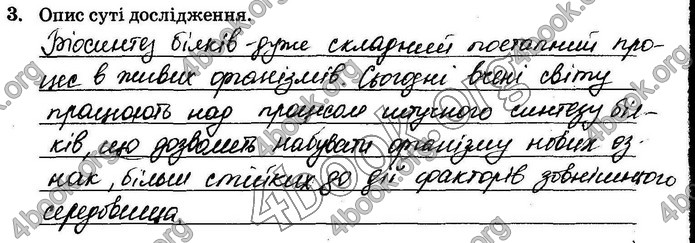 3. Опис суті дослідження.
Біосинтез білків - дуже складний поетапний про-
цес в живих організмів. Сьогодні вчені світу
працюють над процесом штучного синтезу біл-
ків, що дозволить набувати організму нових оз-
нак, більш стійких до дії факторів зовнішнього
середовища.
4book.org